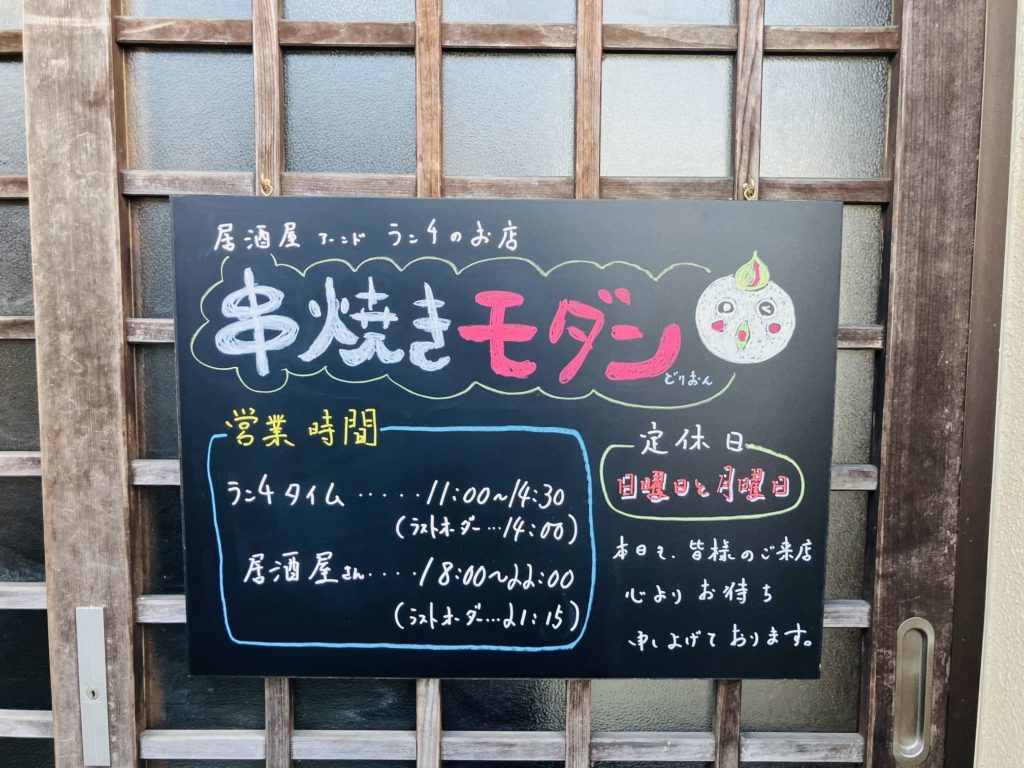 居酒屋 アーンド ランチのお店
串焼きモダン
どりおん
営業時間
ランチタイム ・・・・・ 11:00〜14:30
(ラストオーダー…14:00)
居酒屋さん・・・・18:00〜22:00
(ラストオーダー…21:15)
定休日
日曜日と月曜日
本日も、皆様のご来店
心よりお待ち
申し上げております。